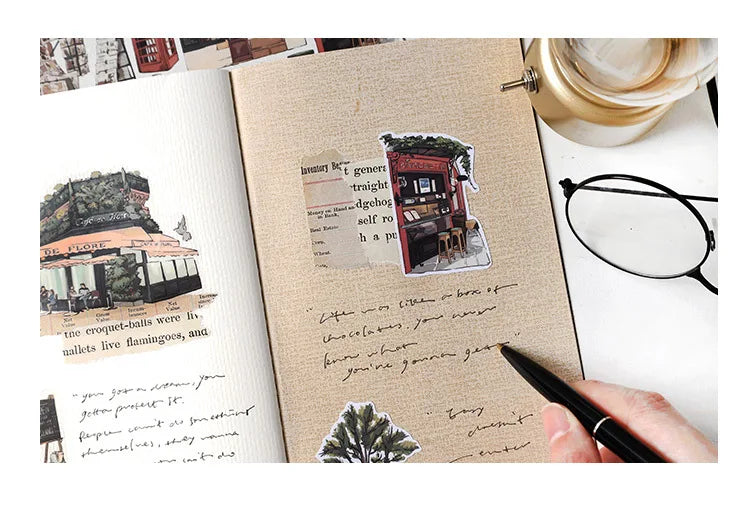 Café de Flore
DE FLORE
Net
Value
Gross
Value
Incum-
brances
Net
Value
"the croquet-balls were liv
mallets live flamingoes, and
"you got a dream, you
gotta protect it.
People can't do something
themselves, they wanna
can't do
Inventory Be
Money on Hand an
in Bank,
Real Estate
Wheat,
t genera
traight
dgehog
self ro
h a pu
"Life was like a box of
chocolates, you never
know what
you're gonna get
"Easy
doesn't
enter